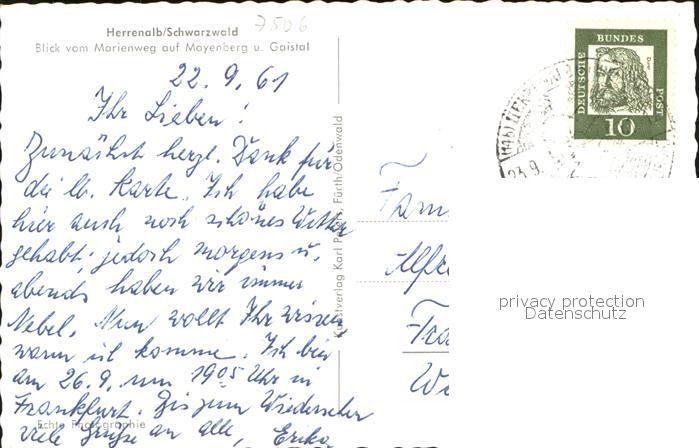 7506
Herrenalb/Schwarzwald
Blick vom Marienweg auf Mayenberg u. Gaistal
22.9.61
Ihr Lieben!
Zunächst herzl. Dank für
die lb. Karte. Ich habe
hier auch noch schönes Wetter
gehabt; jedoch morgens u.
abends haben wir immer
Nebel. Nun wollt Ihr wissen
wann ich komme. Ich bin
am 26.9. um 19 05 Uhr in
Frankfurt. Bis zum Wiedersehen
viele Grüße an alle, Erika
Echte Photographie
Kunstverlag Karl P Fürth/Odenwald
DEUTSCHE BUNDES POST
Dürer
10
23.9.
Fam
Alfre
Fra
privacy protection
Datenschutz